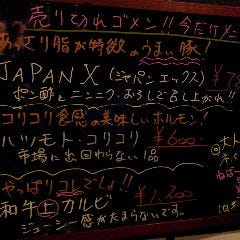 売り切れゴメン!! 今だケメ
あっさり脂が特徴のうまい豚!
JAPAN X (ジャパンエックス) ¥7
ポン酢とニンニクおろしで召し上がれ!!
コリコリ食感の美味しいホルモン!
ハツモト・コリコリ ¥600
市場に出回わらない1品
やっぱりコレでしょ!!
和牛上カルビ ¥1,200
ジューシー感がたまらないです。